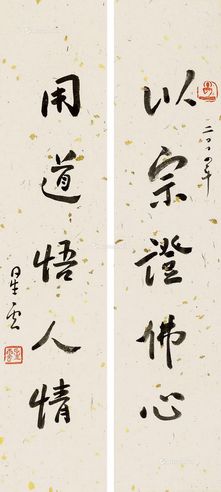 以宗證佛心
二〇〇〇年
用道悟人情
星雲